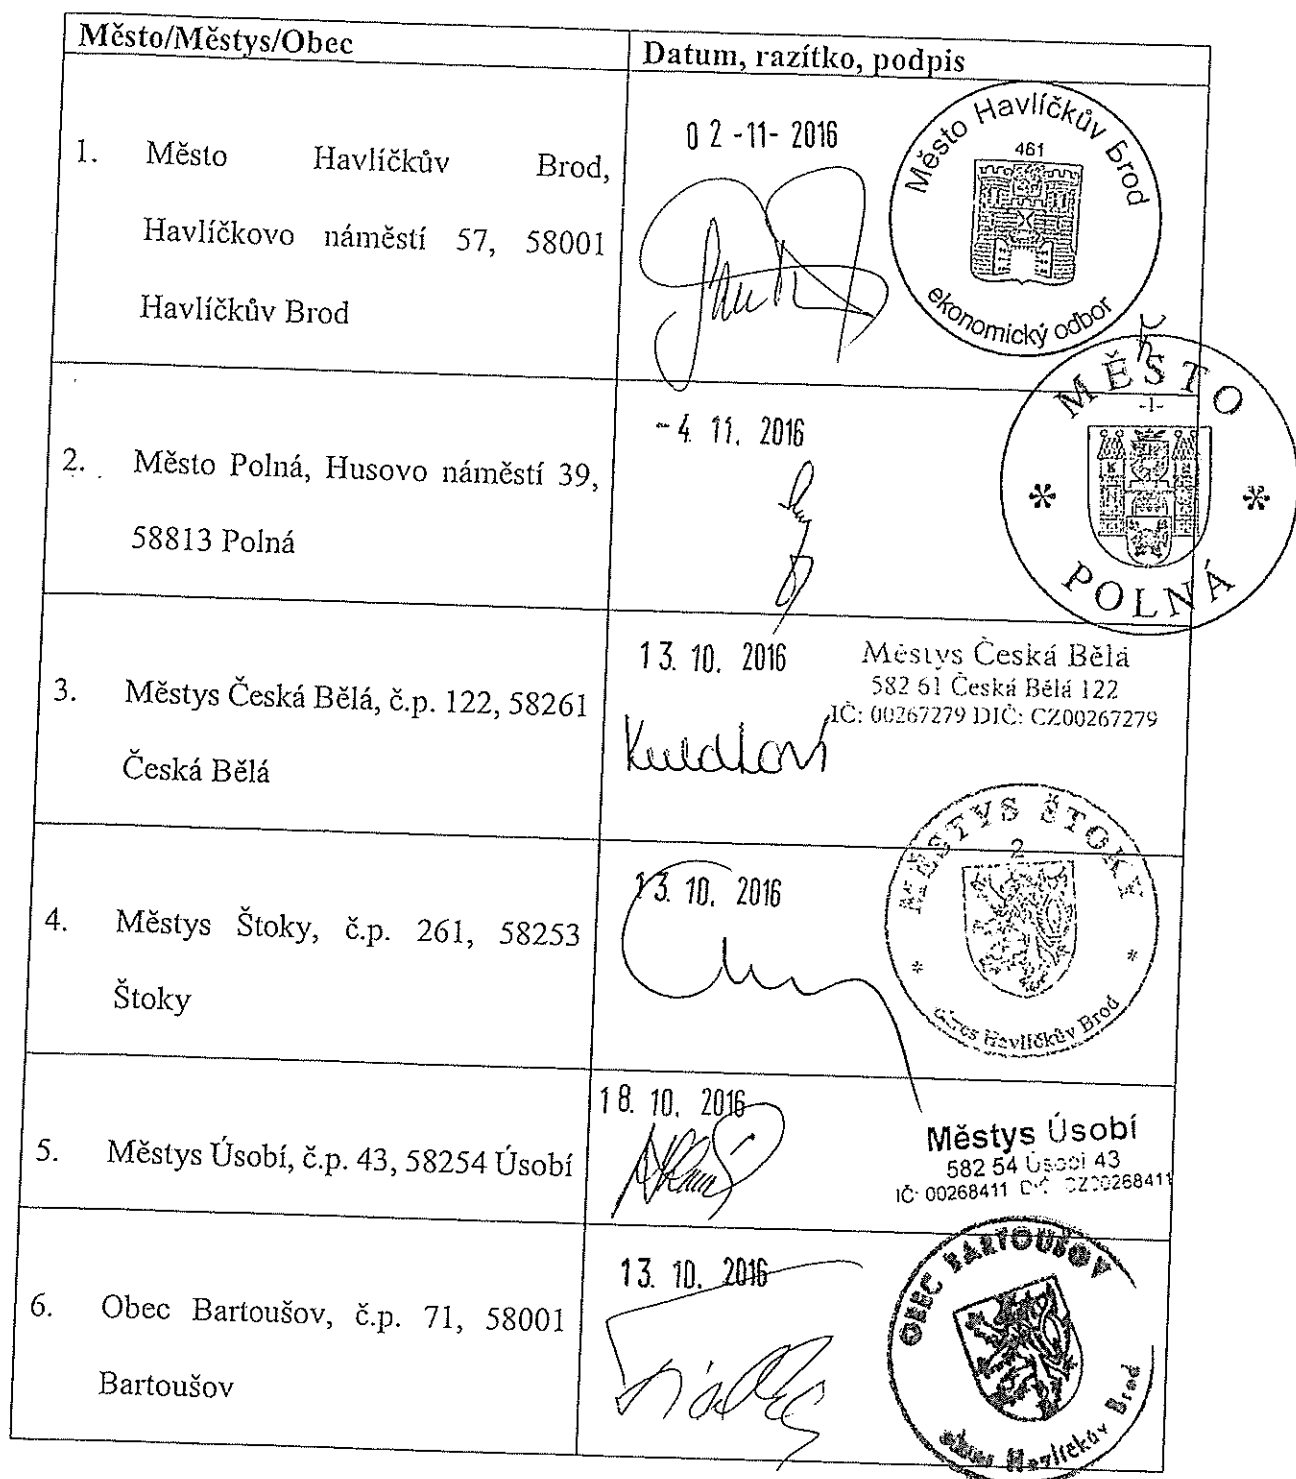 Město/Městys/Obec
Datum, razítko, podpis
1. Město Havlíčkův Brod,
Havlíčkovo náměstí 57, 58001
Havlíčkův Brod
0 2 -11- 2016
Město Havlíčkův Brod
461
ekonomický odbor
2. Město Polná, Husovo náměstí 39,
58813 Polná
- 4. 11. 2016
MĚSTO
-1-
* *
POLNÁ
3. Městys Česká Bělá, č.p. 122, 58261
Česká Bělá
13. 10. 2016
Městys Česká Bělá
582 61 Česká Bělá 122
IČ: 00267279 DIČ: CZ00267279
4. Městys Štoky, č.p. 261, 58253
Štoky
13. 10. 2016
MĚSTYS ŠTOKY
2
* *
okres Havlíčkův Brod
5. Městys Úsobí, č.p. 43, 58254 Úsobí
18. 10. 2016
Městys Úsobí
582 54 Úsobí 43
IČ: 00268411 DIČ: CZ00268411
6. Obec Bartoušov, č.p. 71, 58001
Bartoušov
13. 10. 2016
OBEC BARTOUŠOV
okres Havlíčkův Brod